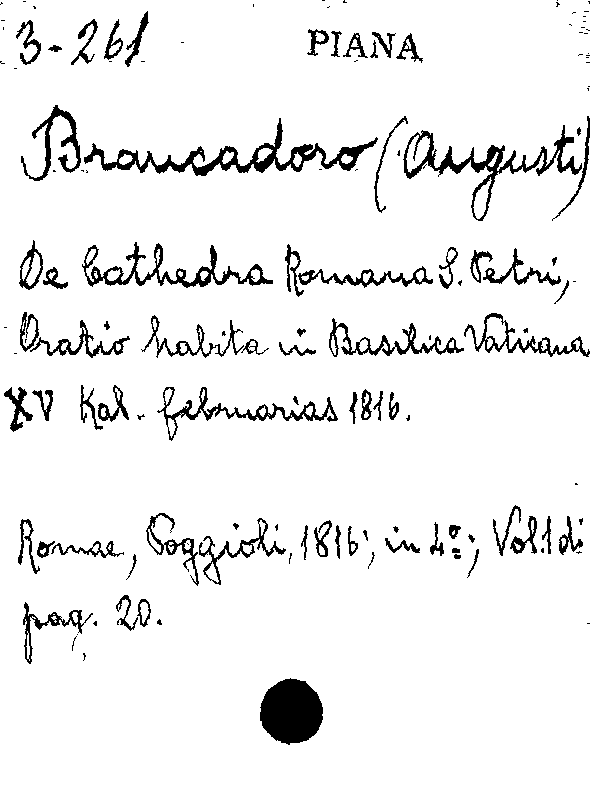 3-261 PIANA
Brancadoro (Augusti)
De Cathedra Romana S. Petri,
Oratio habita in Basilica Vaticana
XV Kal. februarias 1816.
Romae, Poggioli, 1816; in 4º; Vol. 1 di
pag. 20.